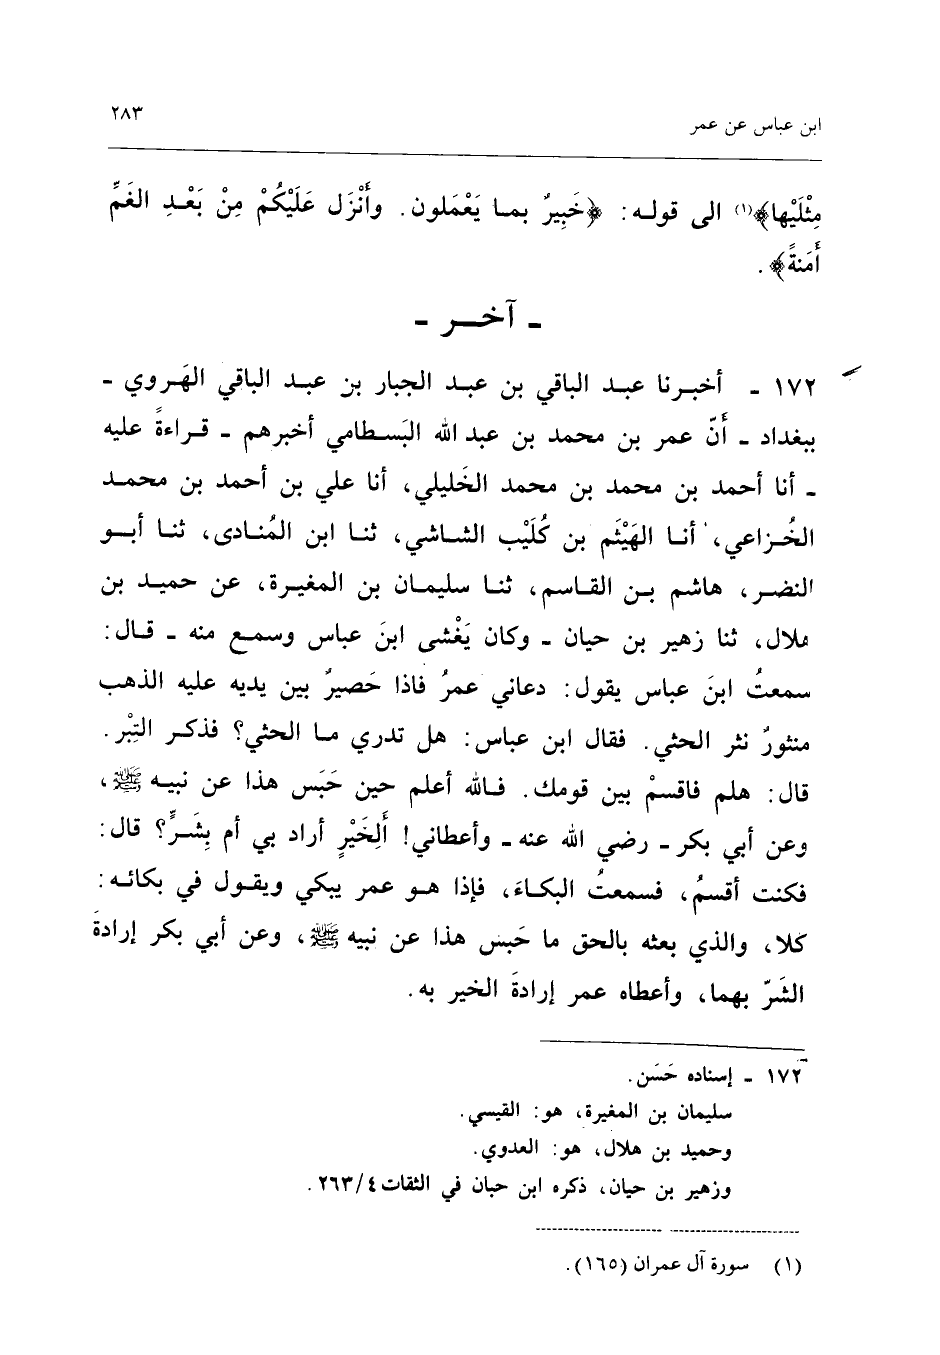 ٢٨٣
ابن عباس عن عمر
مِثْلَيْها﴾(١) الى قوله: ﴿خَبِيرٌ بما يَعْمَلون. وأَنْزَل عَلَيْكُمْ مِنْ بَعْدِ الغَمِّ
أَمَنةً﴾.
ـ آخر ـ
١٧٢ ـ أخبرنا عبد الباقي بن عبد الجبار بن عبد الباقي الهَروي ـ
ببغداد ـ أَنّ عمر بن محمد بن عبد الله البَسطامي أخبرهم ـ قراءةً عليه
ـ أنا أحمد بن محمد بن محمد الخَليلي، أنا علي بن أحمد بن محمد
الخُزاعي، أنا الهَيْثَم بن كُلَيْب الشاشي، ثنا ابن المُنادى، ثنا أبو
النضر، هاشم بن القاسم، ثنا سليمان بن المغيرة، عن حميد بن
هلال، ثنا زهير بن حيان ـ وكان يَغْشى ابنَ عباس وسمع منه ـ قال:
سمعتُ ابنَ عباس يقول: دعاني عمرُ فاذا حَصيرٌ بين يديه عليه الذهب
منثورٌ نثر الحثي. فقال ابن عباس: هل تدري ما الحثي؟ فذكر التِبْر.
قال: هلم فاقسمْ بين قومك. فالله أعلم حين حَبَس هذا عن نبيه ﷺ،
وعن أبي بكر ـ رضي الله عنه ـ وأعطاني! أَلِخَيْرٍ أراد بي أم بِشَرٍّ؟ قال:
فكنت أقسمُ، فسمعتُ البكاءَ، فإذا هو عمر يبكي ويقول في بكائه:
كلا، والذي بعثه بالحق ما حَبَس هذا عن نبيه ﷺ، وعن أبي بكر إرادةَ
الشَرّ بهما، وأعطاه عمر إرادةَ الخير به.
١٧٢ ـ إسناده حَسَن.
سليمان بن المغيرة، هو: القيسي.
وحميد بن هلال، هو: العدوي.
وزهير بن حيان، ذكره ابن حبان في الثقات ٢٦٣/٤.
(١) سورة آل عمران (١٦٥).